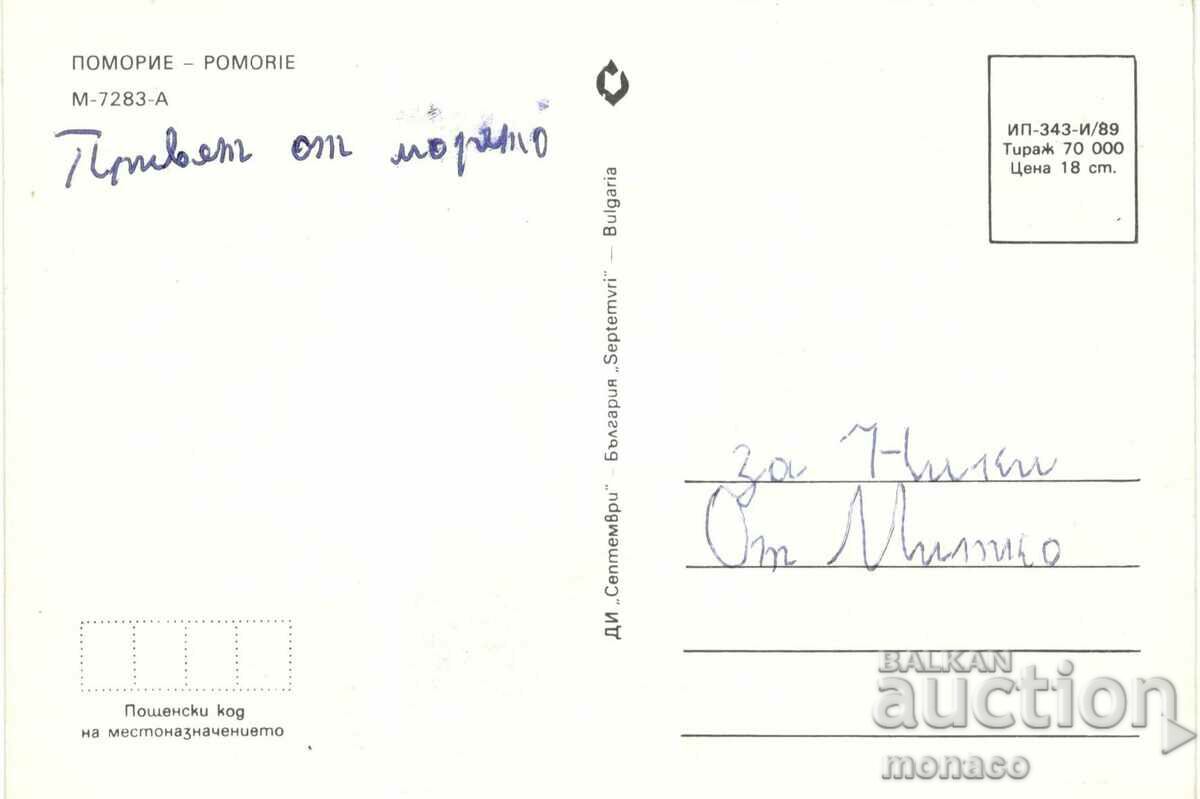 ПОМОРИЕ – POMORIE
М-7283-А
Привет от морето
ДИ „Септември" – България „Septemvri" — Bulgaria
ИП-343-И/89
Тираж 70 000
Цена 18 ст.
за Ники
От Митко
Пощенски код
на местоназначението
BALKAN
auction
monaco